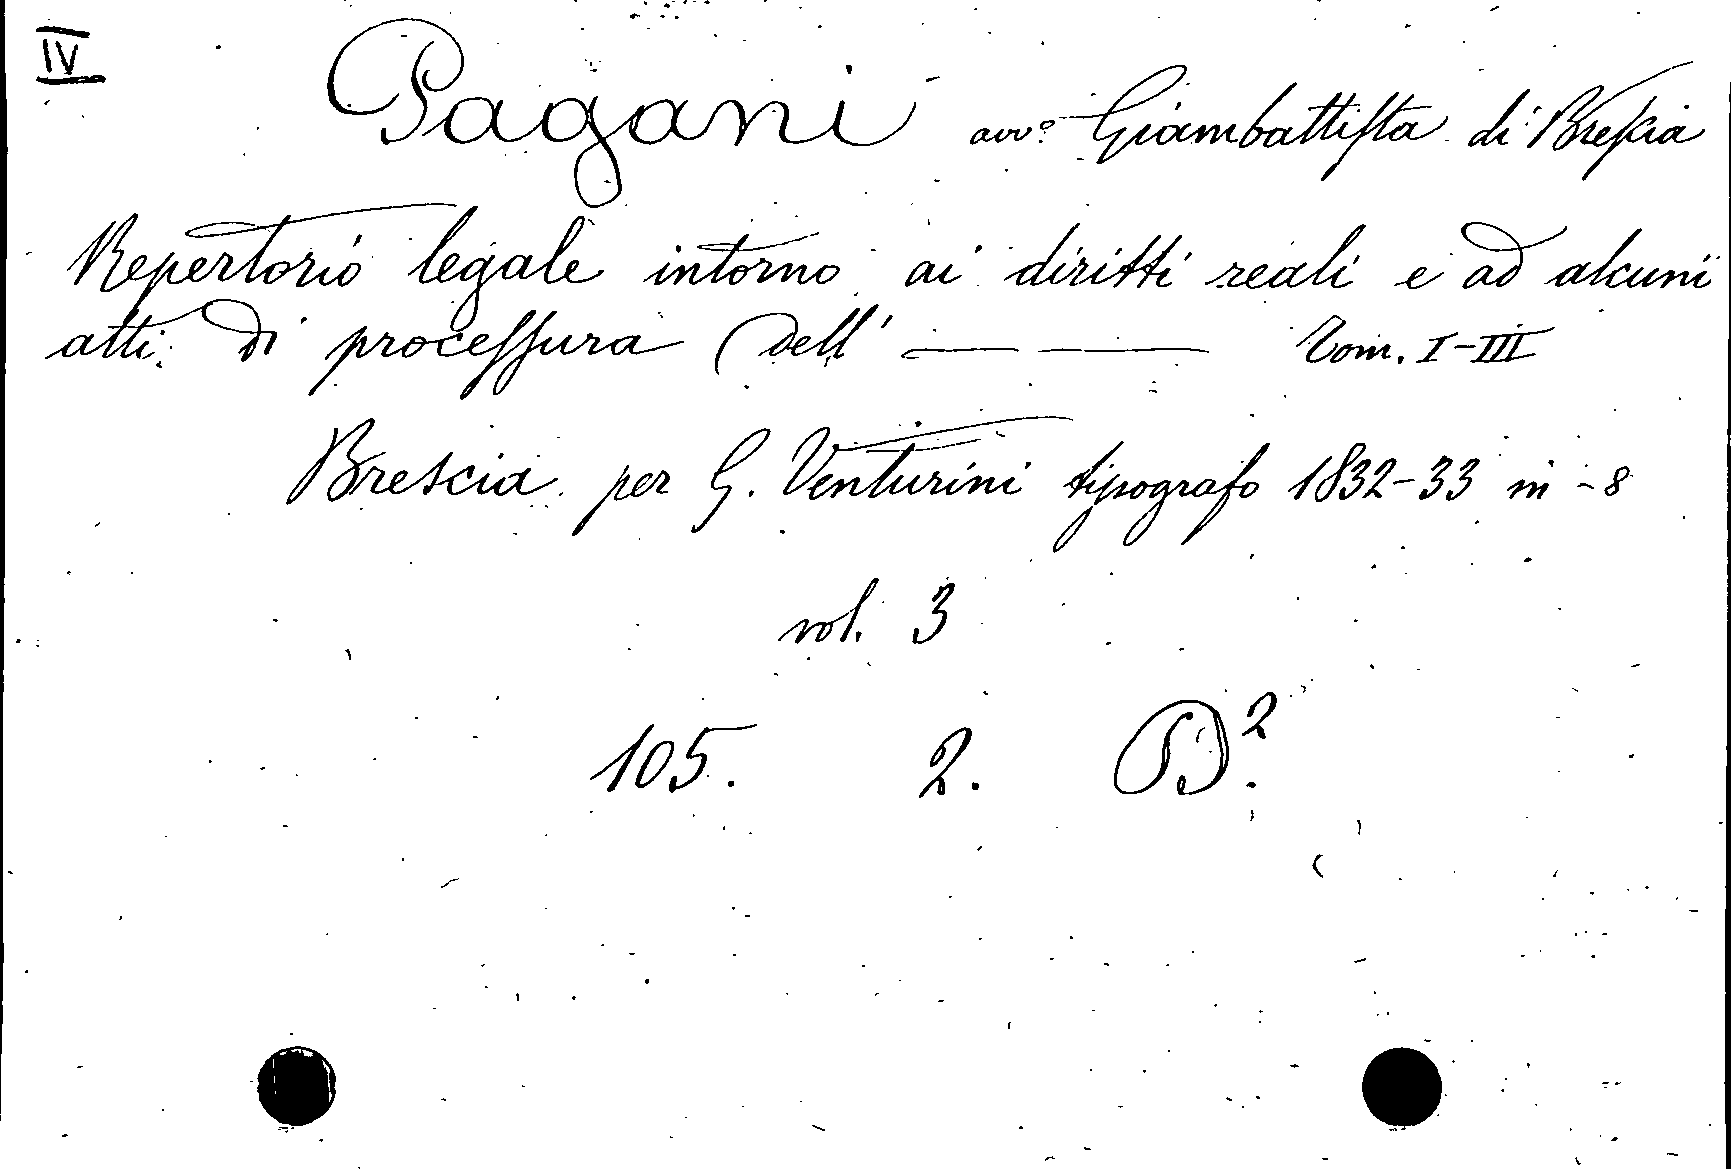 IV
Pagani avv.º Giambattista di Brescia
Repertorio legale intorno ai diritti reali e ad alcuni
atti di processura dell' —— —— Tom. I-III
Brescia per G. Venturini tipografo 1832-33 in-8
vol. 3
105. 2. D².